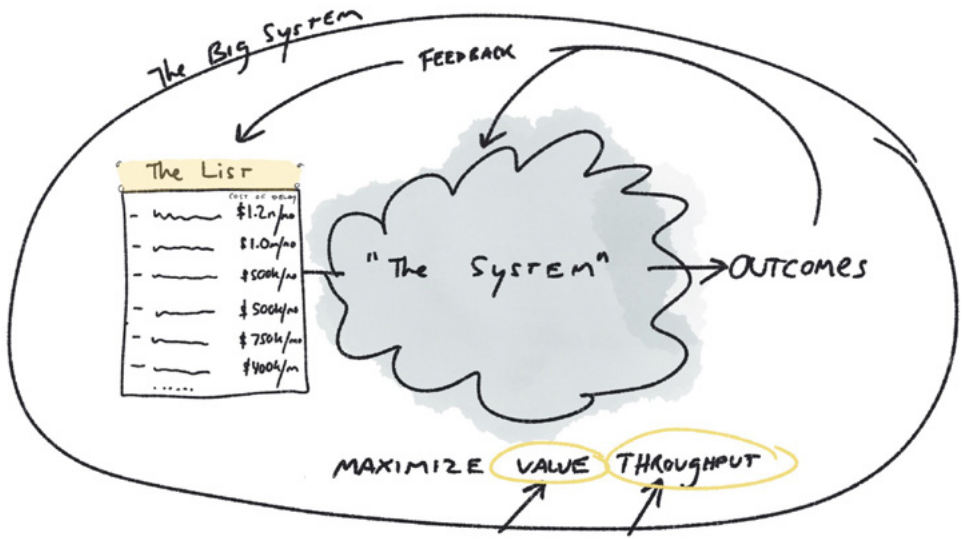 The Big System
FEEDBACK
The List
COST OF DELAY
$1.2m/mo
$1.0m/mo
$500k/mo
$500k/mo
$750k/mo
$400k/m
"The System"
OUTCOMES
MAXIMIZE VALUE THROUGHPUT